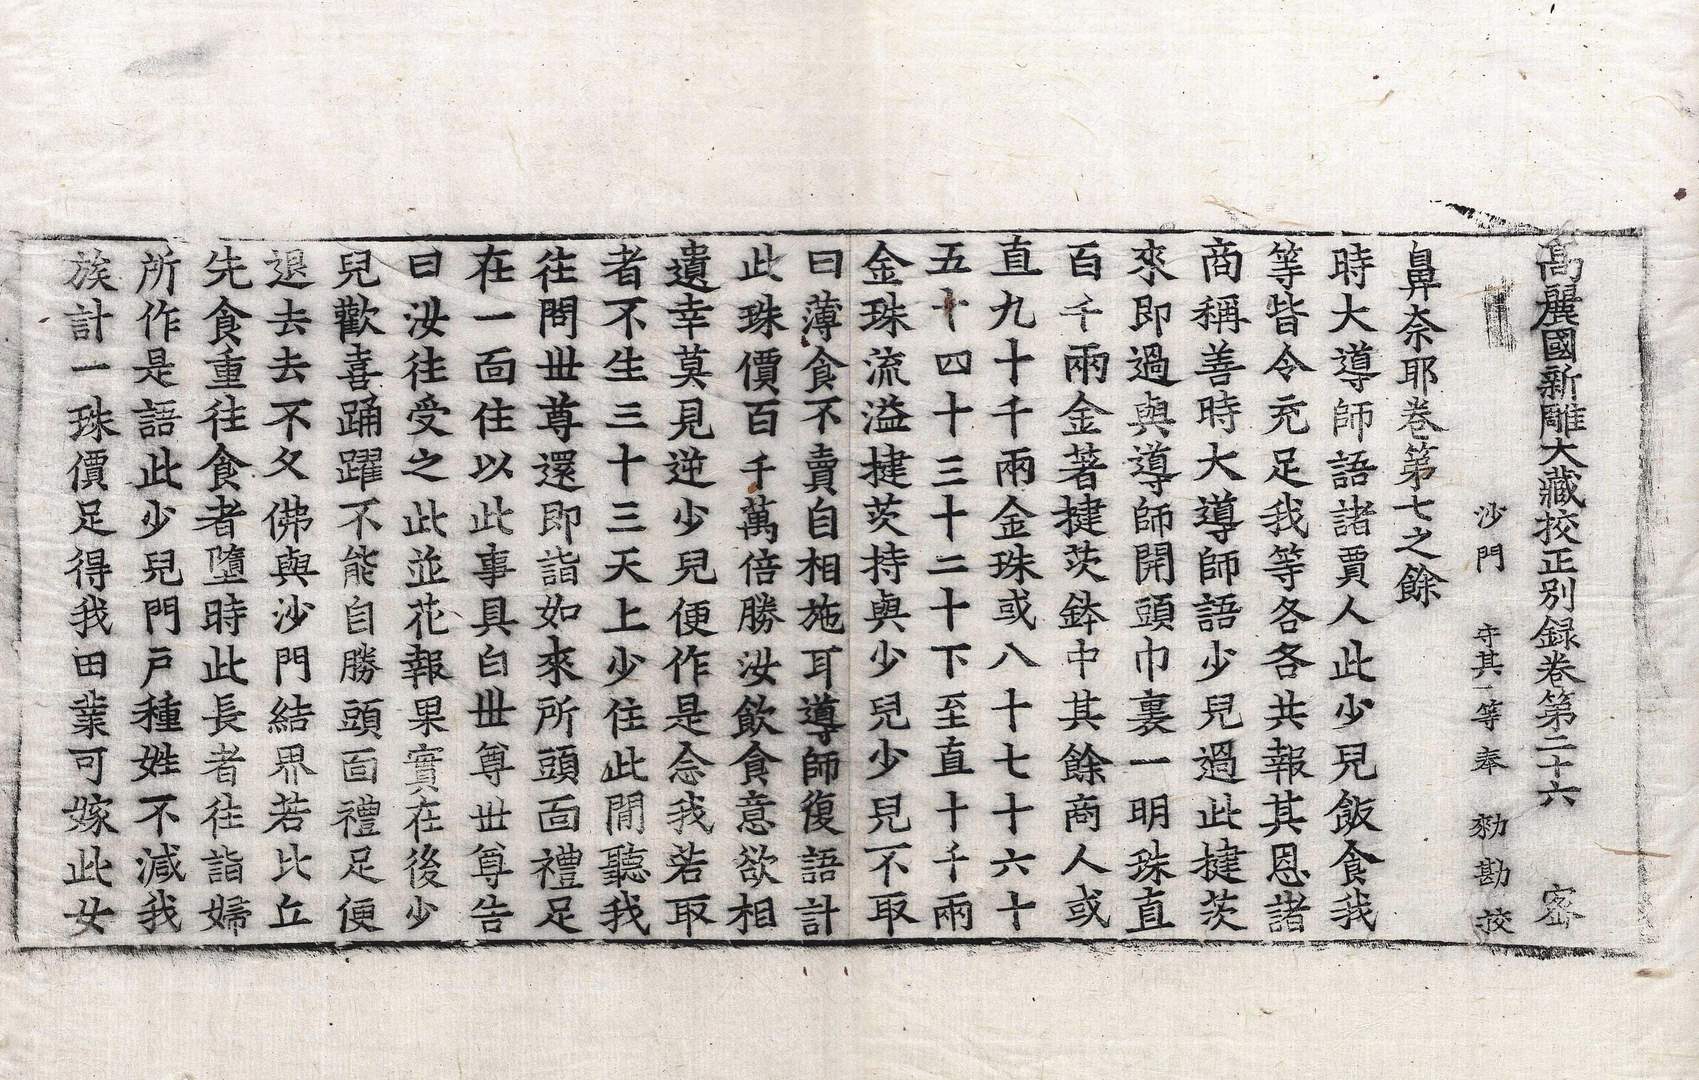 高麗國新雕大藏校正別錄卷第二十六　密
沙門　守其　等奉　勑勘校
鼻奈耶卷第七之餘
時大導師語諸賈人此少兒飯食我
等皆令充足我等各各共報其恩諸
商稱善時大導師語少兒過此揵茨
來即過與導師開頭巾裏一明珠直
百千兩金著揵茨鉢中其餘商人或
直九十千兩金珠或八十七十六十
五十四十三十二十下至直十千兩
金珠流溢揵茨持與少兒少兒不取
曰薄食不賣自相施耳導師復語計
此珠價百千萬倍勝汝飲食意欲相
遺幸莫見逆少兒便作是念我若取
者不生三十三天上少住此閒聽我
往問世尊還即詣如來所頭面禮足
在一面住以此事具白世尊世尊告
曰汝往受之此並花報果實在後少
兒歡喜踊躍不能自勝頭面禮足便
退去去不久佛與沙門結界若比丘
先食重往食者墮時此長者往詣婦
所作是語此少兒門戶種姓不減我
族計一珠價足得我田業可嫁此女